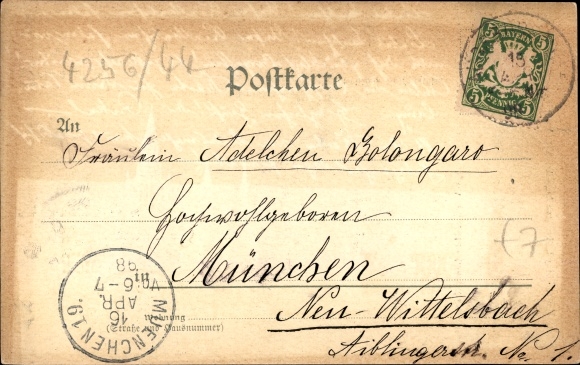 4256/44
Postkarte
5 BAYERN 5
5 PFENNIG 5
15
An
Fräulein Adelchen Bolongaro
Hochwohlgeboren
in München
Neu-Wittelsbach
Wohnung
(Straße und Hausnummer)
Aiblingerstr. No. 1.
MUENCHEN 16
16
APR.
6-7
98